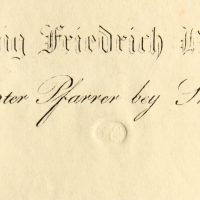 ig Friedrich
ter Pfarrer bey S